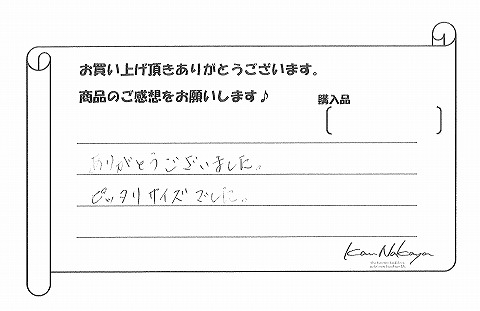 お買い上げ頂きありがとうございます。
商品のご感想をお願いします♪
購入品
ありがとうございました。
ピッタリサイズでした。
Kan Nakaya